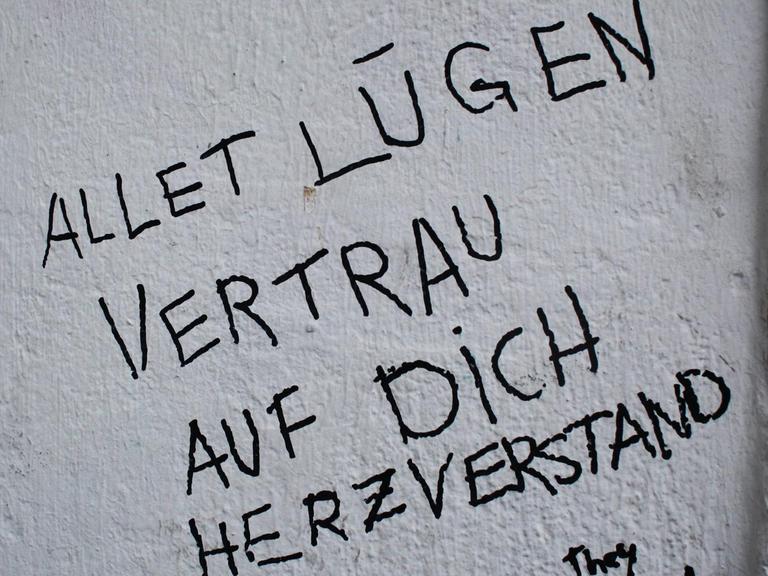 ALLET LÜGEN
VERTRAU
AUF DiCH
HERZVERSTAND
They